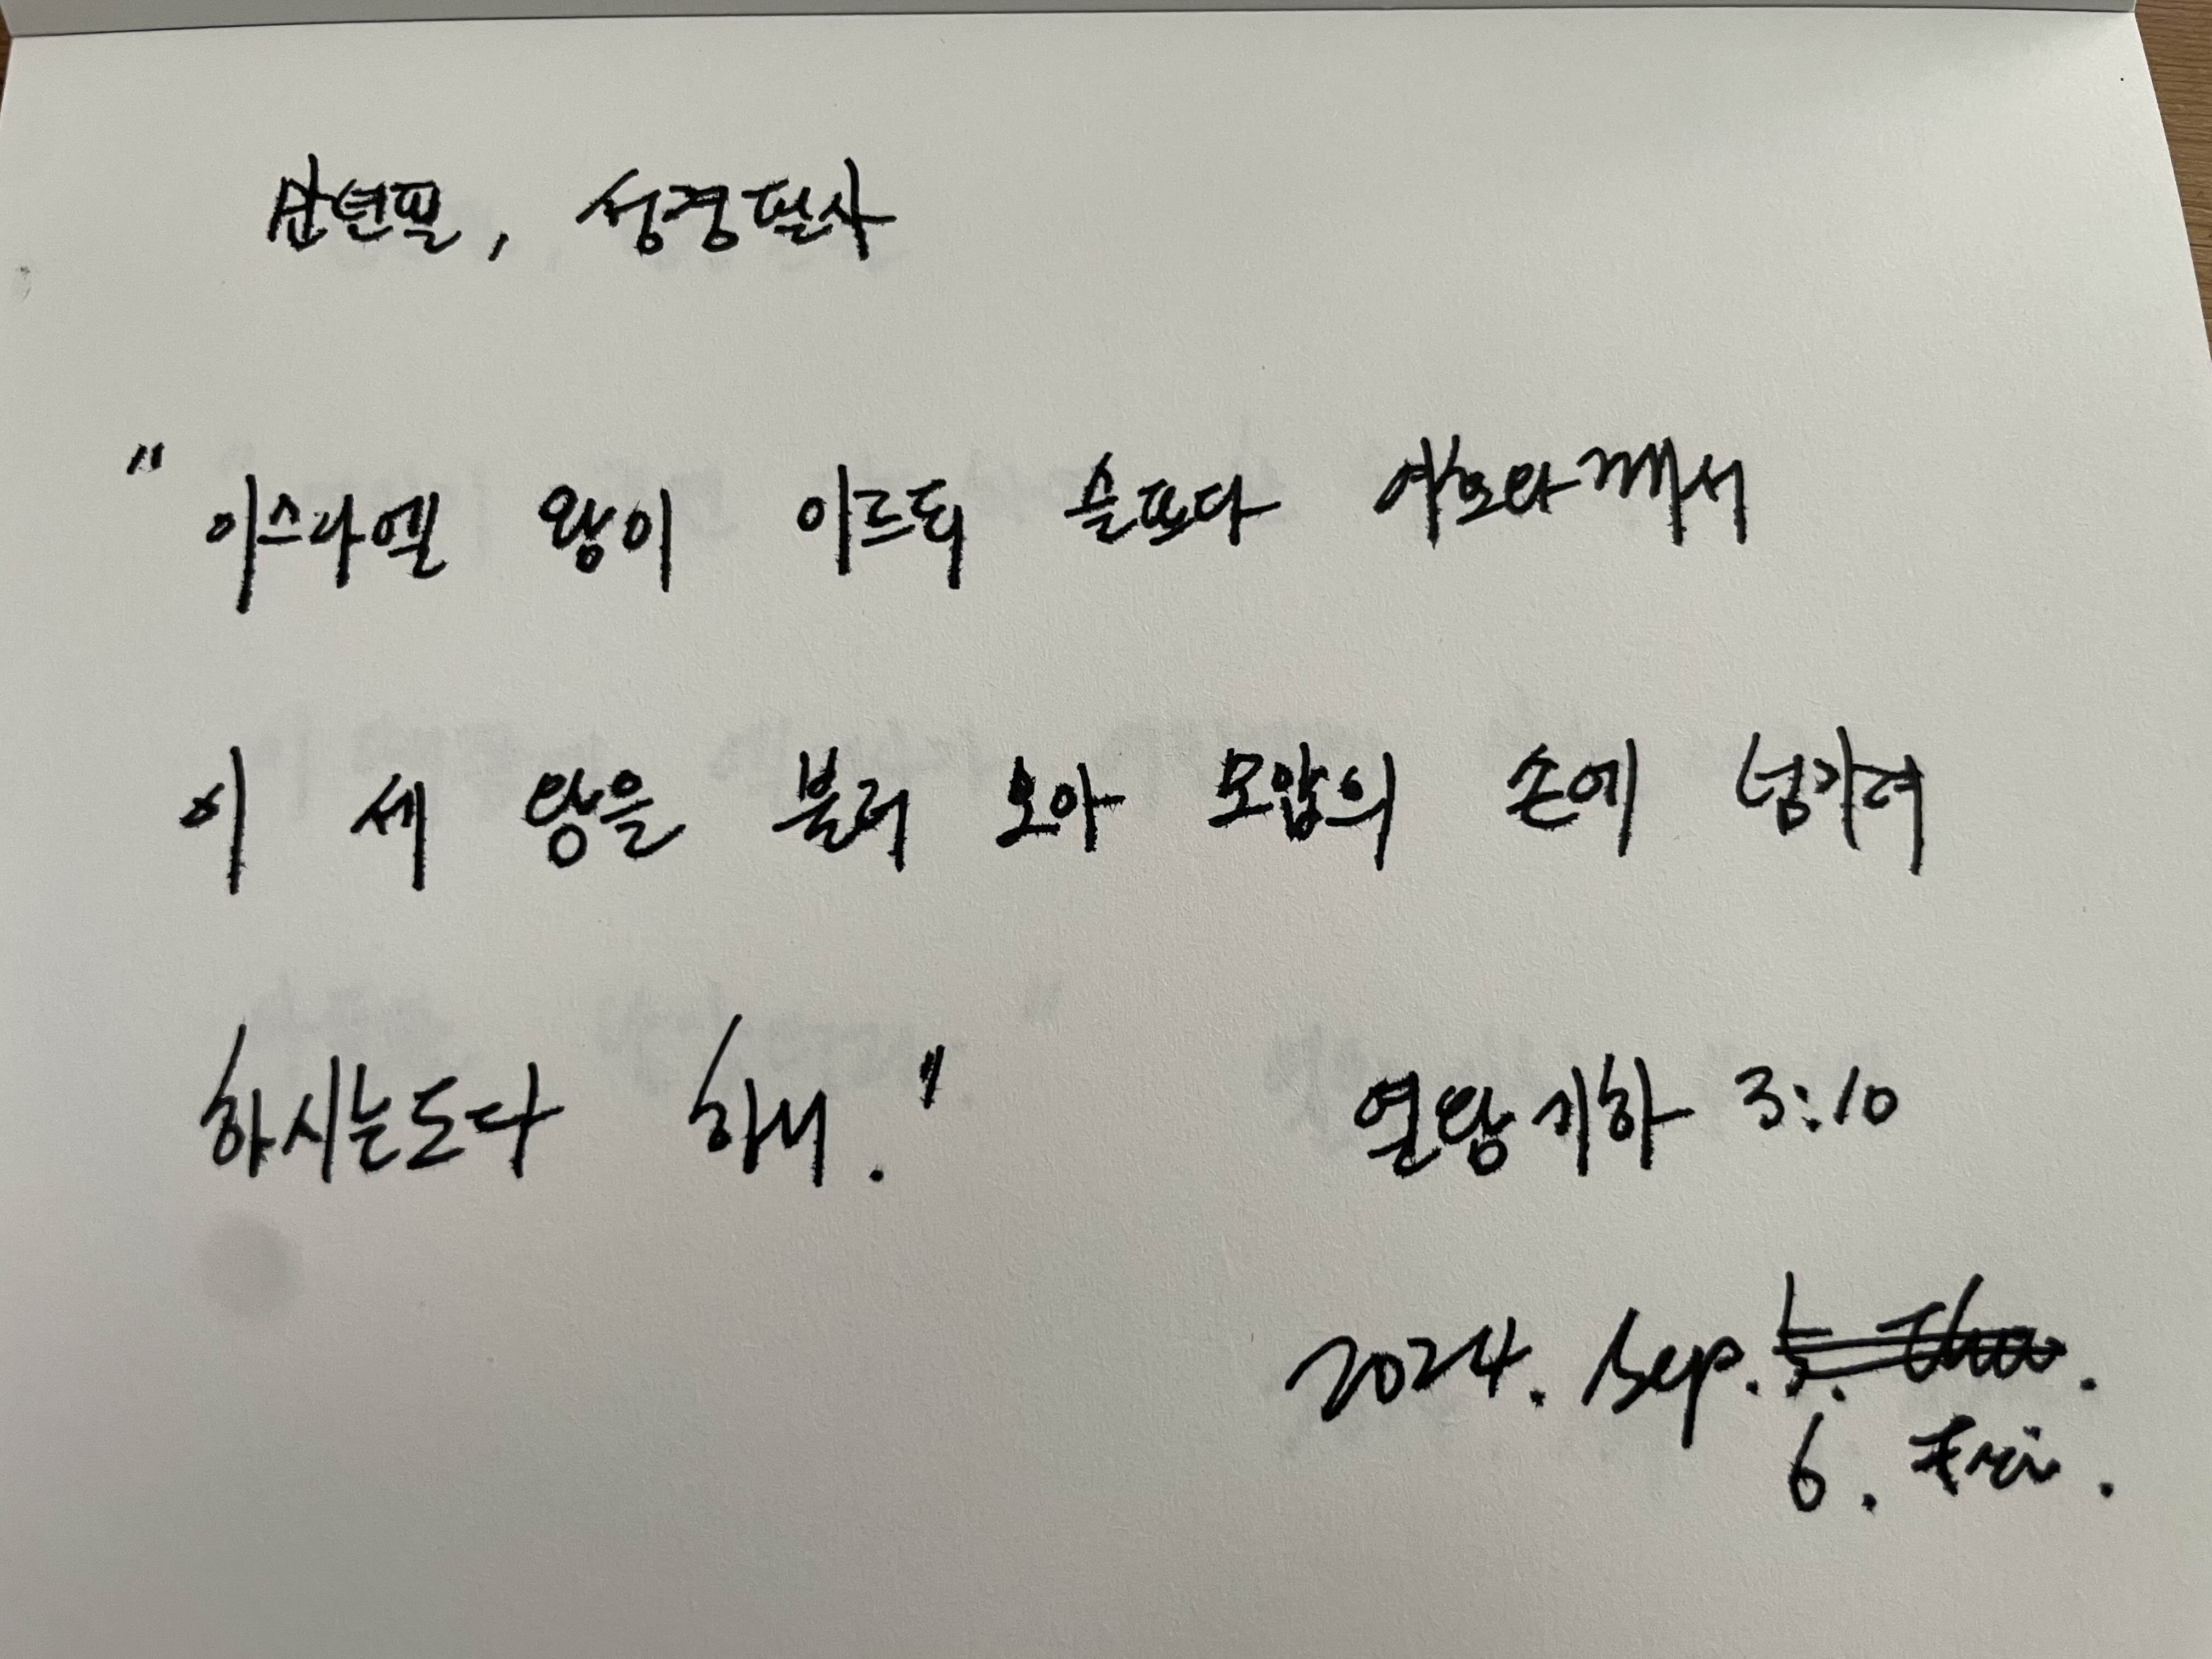 만년필, 성경필사
"이스라엘 왕이 이르되 슬프다 여호와께서
이 세 왕을 불러 모아 모압의 손에 넘기려
하시는도다 하니."
열왕기하 3:10
2024. Sep. 5. Thu.
6. Fri.